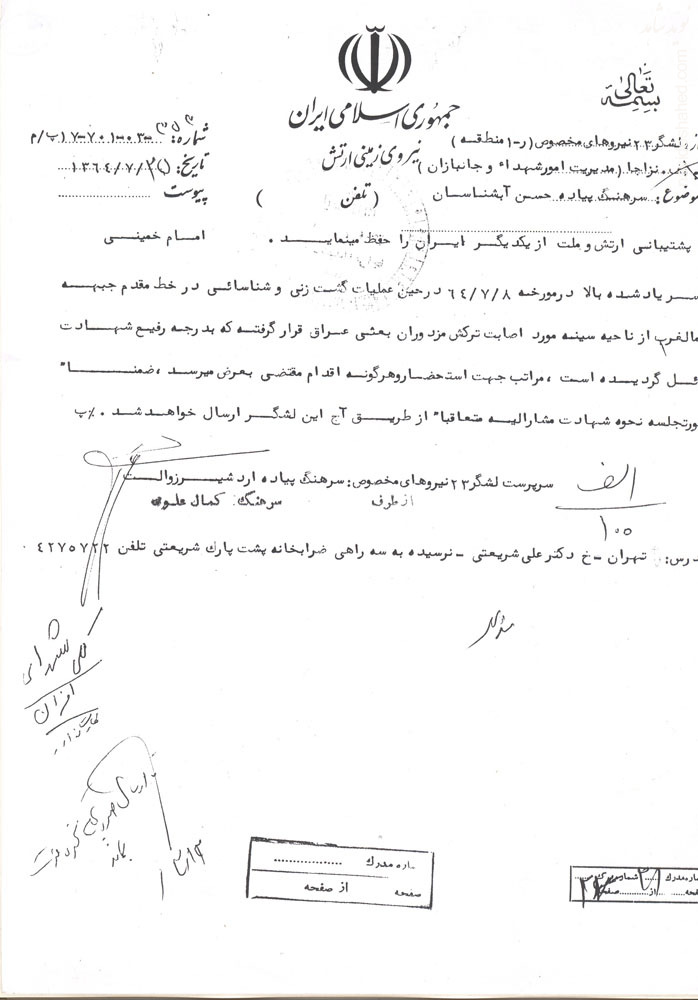 بسمه تعالی
جمهوری اسلامی ایران
نیروی زمینی ارتش
شماره: ۳۵۳-۰۳-۷۰۱-۱۷پ/م
تاریخ: ۱۳۶۴/۷/
پیوست
از: لشگر ۲۳ نیروهای مخصوص (ر-۱ منطقه)
نزاجا (مدیریت امور شهداء و جانبازان)
موضوع: سرهنگ پیاده حسن آبشناسان
(تلفن )
پشتیبانی ارتش و ملت از یکدیگر ایران را حفظ مینماید. امام خمینی
سر یاد شده بالا در مورخه ۶۴/۷/۸ در حین عملیات گشت زنی و شناسائی در خط مقدم جبهه
مالغرب از ناحیه سینه مورد اصابت ترکش مزدوران بعثی عراق قرار گرفته که بدرجه رفیع شهادت
ئل گردیده است، مراتب جهت استحضار و هرگونه اقدام مقتضی بعرض میرسد، ضمنا"
ورتجلسه نحوه شهادت مشارالیه متعاقبا" از طریق آج این لشگر ارسال خواهد شد. ٪پ
سرپرست لشگر ۲۳ نیروهای مخصوص: سرهنگ پیاده اردشیر زوالت
از طرف سرهنگ: کمال علوی
الف
۱۰۰
درس: تهران-خ دکتر علی شریعتی-نرسیده به سه راهی ضرابخانه پشت پارک شریعتی تلفن ۴۲۷۵۷۲۲
شهدای
بماند
ماره مدرک
صفحه از صفحه
ماره مدرک
از صفحه